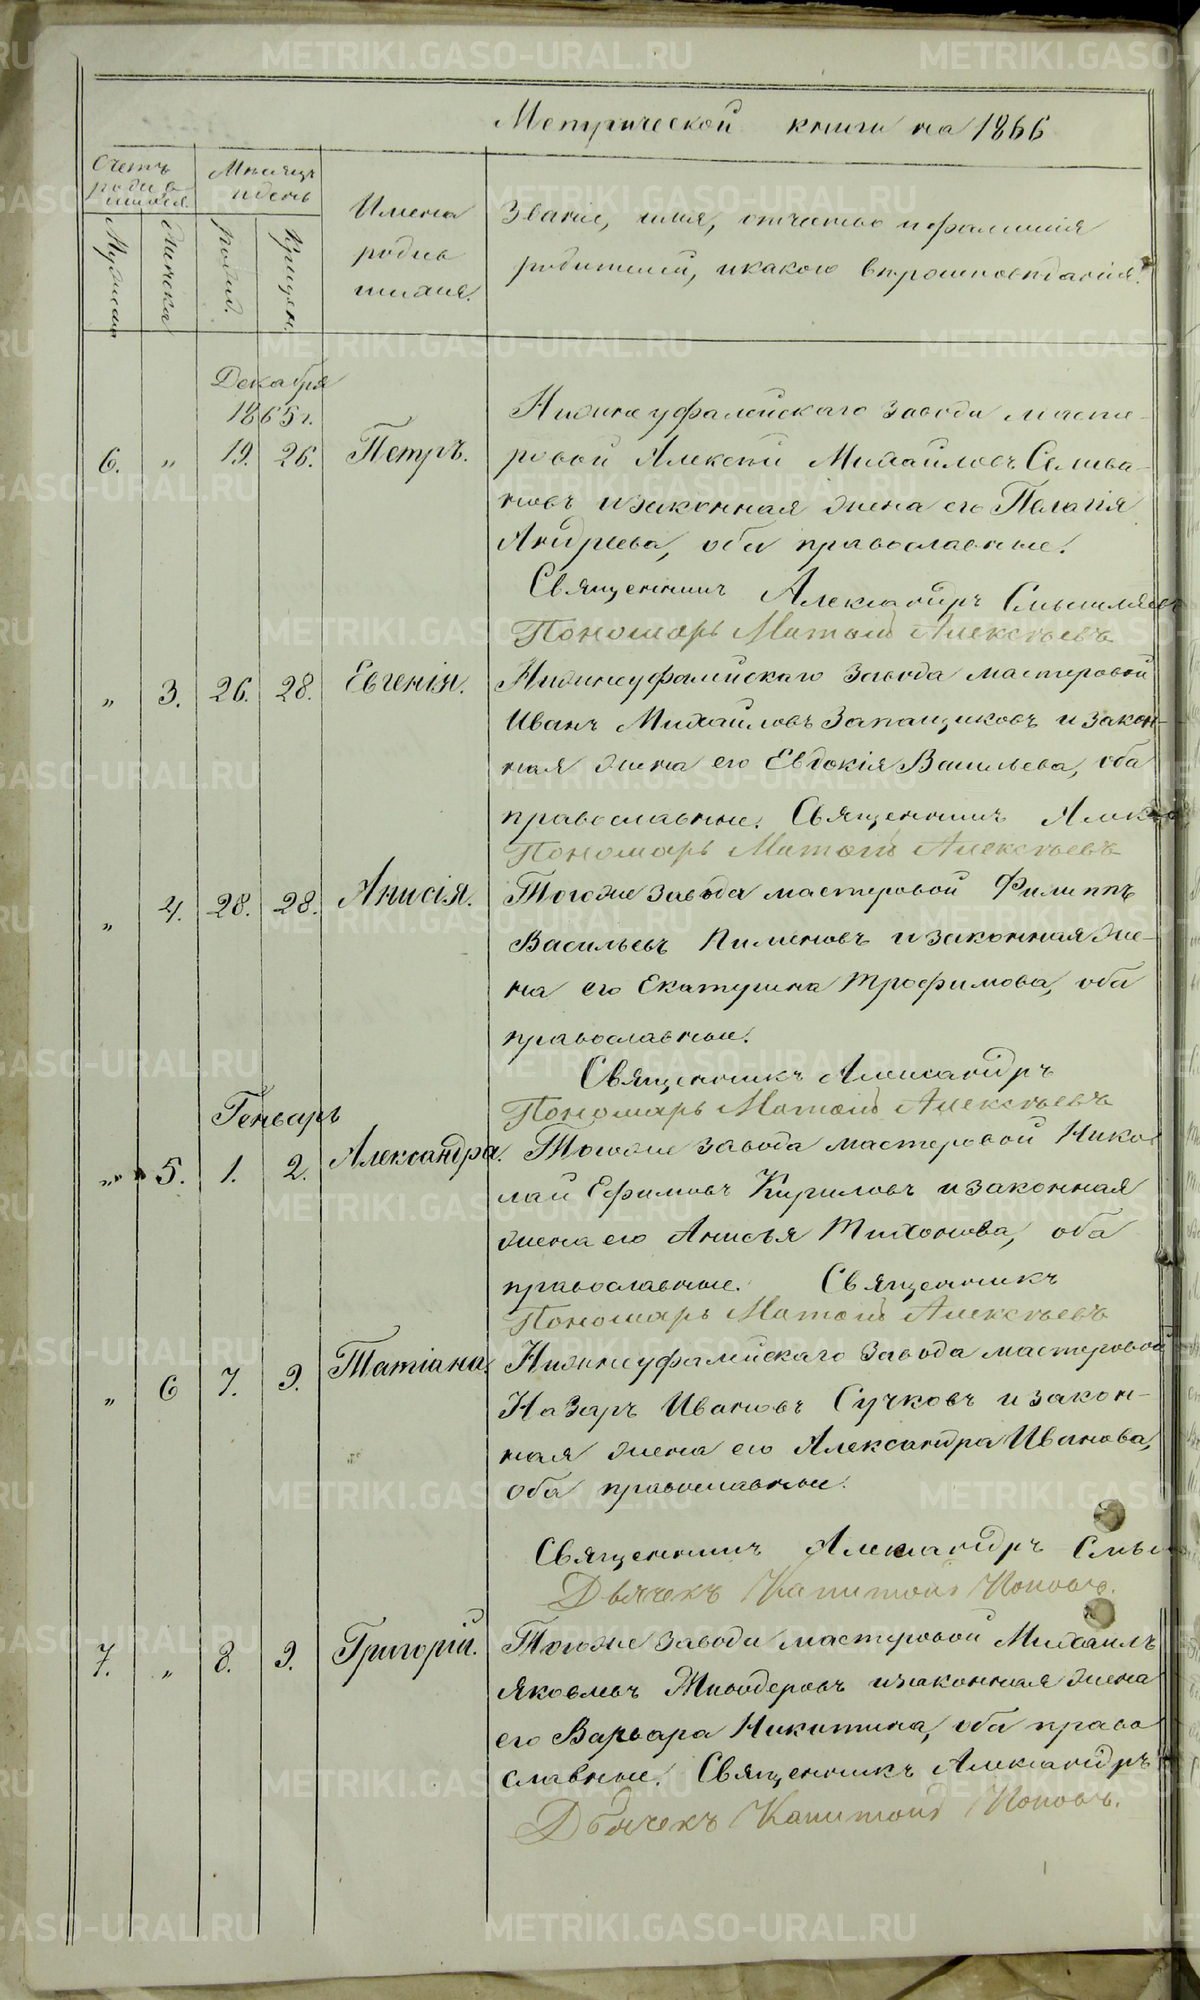 Метрической книги на 1866
Счетъ родившихся.
Мужеска
Женска
Мѣсяцъ и день
рожд.
Крещен.
Имена родившихся.
Званіе, имя, отчество и фамилія
родителей, и какого вѣроисповѣданія.
Декабря
1865 г.
6. „ 19. 26. Петръ.
Нижнеуфалейскаго завода масте-
ровой Алексѣй Михайловъ Селива-
новъ и законная жена его Пелагія
Андреева, оба православные.
Священникъ Александръ Смышляевъ
Пономарь Матѳій Алексѣевъ
„ 3. 26. 28. Евгенія.
Нижнеуфалейскаго завода мастеровой
Иванъ Михайловъ Запащиковъ и закон-
ная жена его Евдокія Васильева, оба
православные. Священникъ Алек
Пономарь Матѳій Алексѣевъ
„ 4. 28. 28. Анисія.
Тогоже завода мастеровой Филиппъ
Васильевъ Пименовъ и законная же-
на его Екатерина Трофимова, оба
православные.
Священникъ Александръ
Пономарь Матѳій Алексѣевъ
Генварь
„ 5. 1. 2. Александра.
Тогоже завода мастеровой Нико
лай Ефимовъ Кириловъ и законная
жена его Анисья Тихонова, оба
православные. Священникъ
Пономарь Матѳій Алексѣевъ
„ 6 7. 9. Татіана.
Нижнеуфалейскаго завода мастеровой
Назаръ Ивановъ Сучковъ и закон-
ная жена его Александра Иванова,
оба православные.
Священникъ Александръ Смы
Дьячекъ Капитонъ Поповъ.
7. „ 8. 9. Григорій.
Тогоже завода мастеровой Михаилъ
Яковлевъ и законная жена
его Варвара Никитина, оба право
славные. Священникъ Александръ
Дьячекъ Капитонъ Поповъ.
METRIKI.GASO-URAL.RU